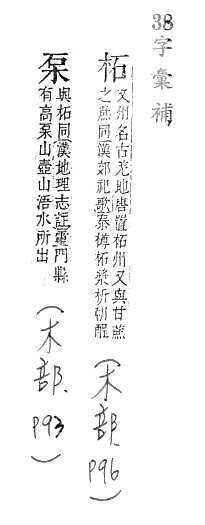 38字彙補
柘
又州名古羌地唐置柘州又與甘蔗
之蔗同漢郊祀歌泰樽柘漿析朝酲
(木部 P96)
與柘同漢地理志註靈門縣
有高山壺山浯水所出
(木部 P93)